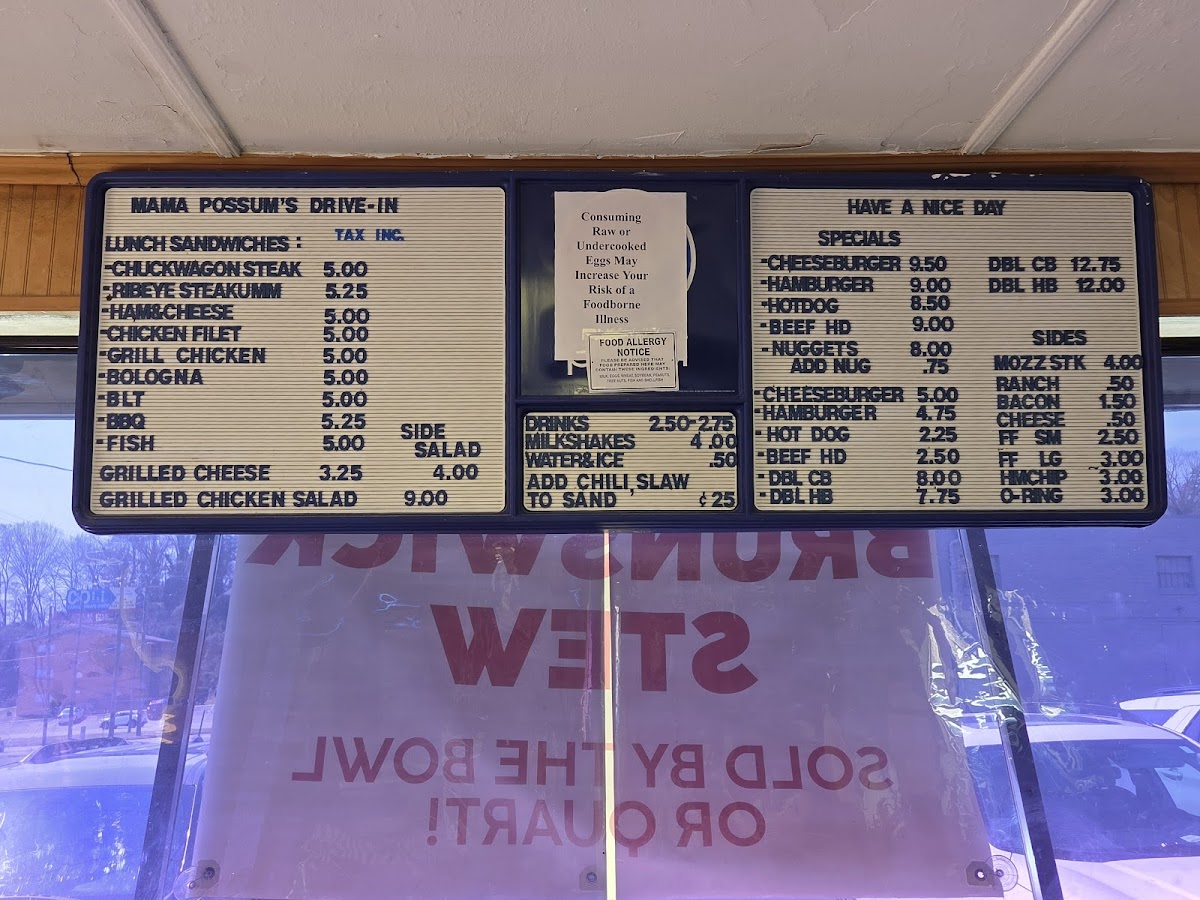 MAMA POSSUM'S DRIVE-IN
TAX INC.
LUNCH SANDWICHES :
-CHUCKWAGON STEAK 5.00
-RIBEYE STEAKUMM 5.25
-HAM&CHEESE 5.00
-CHICKEN FILET 5.00
-GRILL CHICKEN 5.00
-BOLOGNA 5.00
-BLT 5.00
-BBQ 5.25
-FISH 5.00
SIDE
SALAD
4.00
GRILLED CHEESE 3.25
GRILLED CHICKEN SALAD 9.00
Consuming
Raw or
Undercooked
Eggs May
Increase Your
Risk of a
Foodborne
Illness
FOOD ALLERGY
NOTICE
PLEASE BE ADVISED THAT
FOOD PREPARED HERE MAY
CONTAIN THESE INGREDIENTS:
MILK, EGGS, WHEAT, SOYBEAN, PEANUTS,
TREE NUTS, FISH AND SHELLFISH
DRINKS 2.50-2.75
MILKSHAKES 4.00
WATER&ICE .50
ADD CHILI,SLAW
TO SAND ¢25
HAVE A NICE DAY
SPECIALS
-CHEESEBURGER 9.50
-HAMBURGER 9.00
-HOTDOG 8.50
-BEEF HD 9.00
-NUGGETS 8.00
ADD NUG .75
-CHEESEBURGER 5.00
-HAMBURGER 4.75
-HOT DOG 2.25
-BEEF HD 2.50
-DBL CB 8.00
-DBL HB 7.75
DBL CB 12.75
DBL HB 12.00
SIDES
MOZZ STK 4.00
RANCH .50
BACON 1.50
CHEESE .50
FF SM 2.50
FF LG 3.00
HMCHIP 3.00
O-RING 3.00
BRUNSWICK
STEW
SOLD BY THE BOWL
OR QUART!